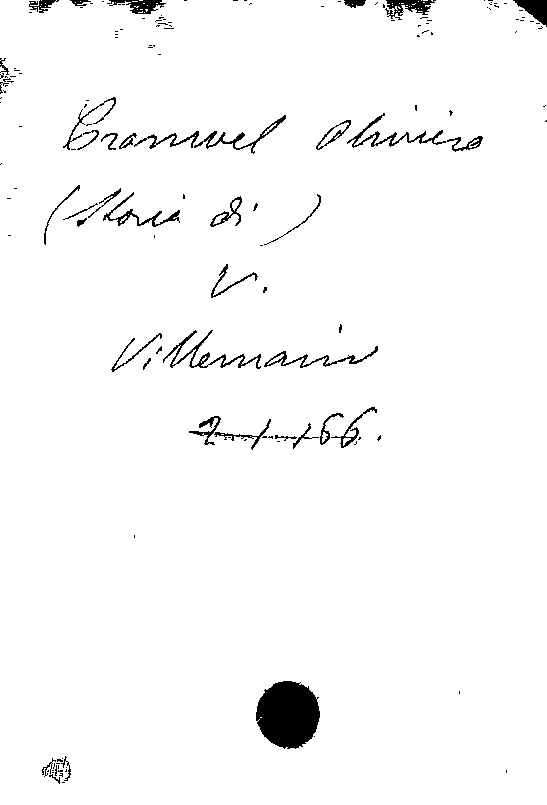 Cromwel Oliviero
(Storia di)
V.
Villemain
2-1-166.